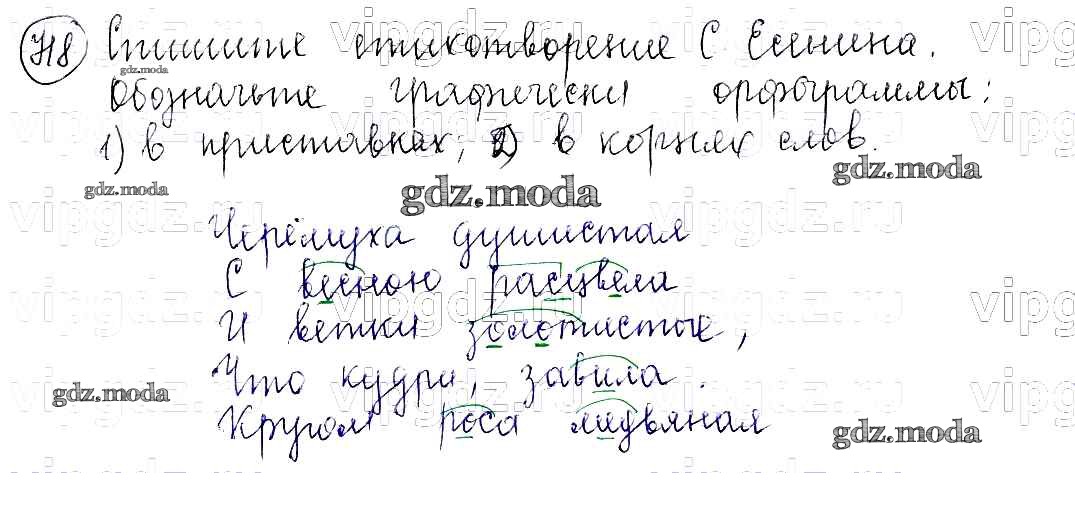 718 Спишите стихотворение С Есенина.
Обозначьте графически орфограммы:
1) в приставках; 2) в корнях слов.
Черёмуха душистая
С весною расцвела
И ветки золотистые,
Что кудри, завила.
Кругом роса мидвяная
gdz.moda
gdz.moda
gdz.moda
gdz.moda
gdz.moda
gdz.moda
vipgdz.ru